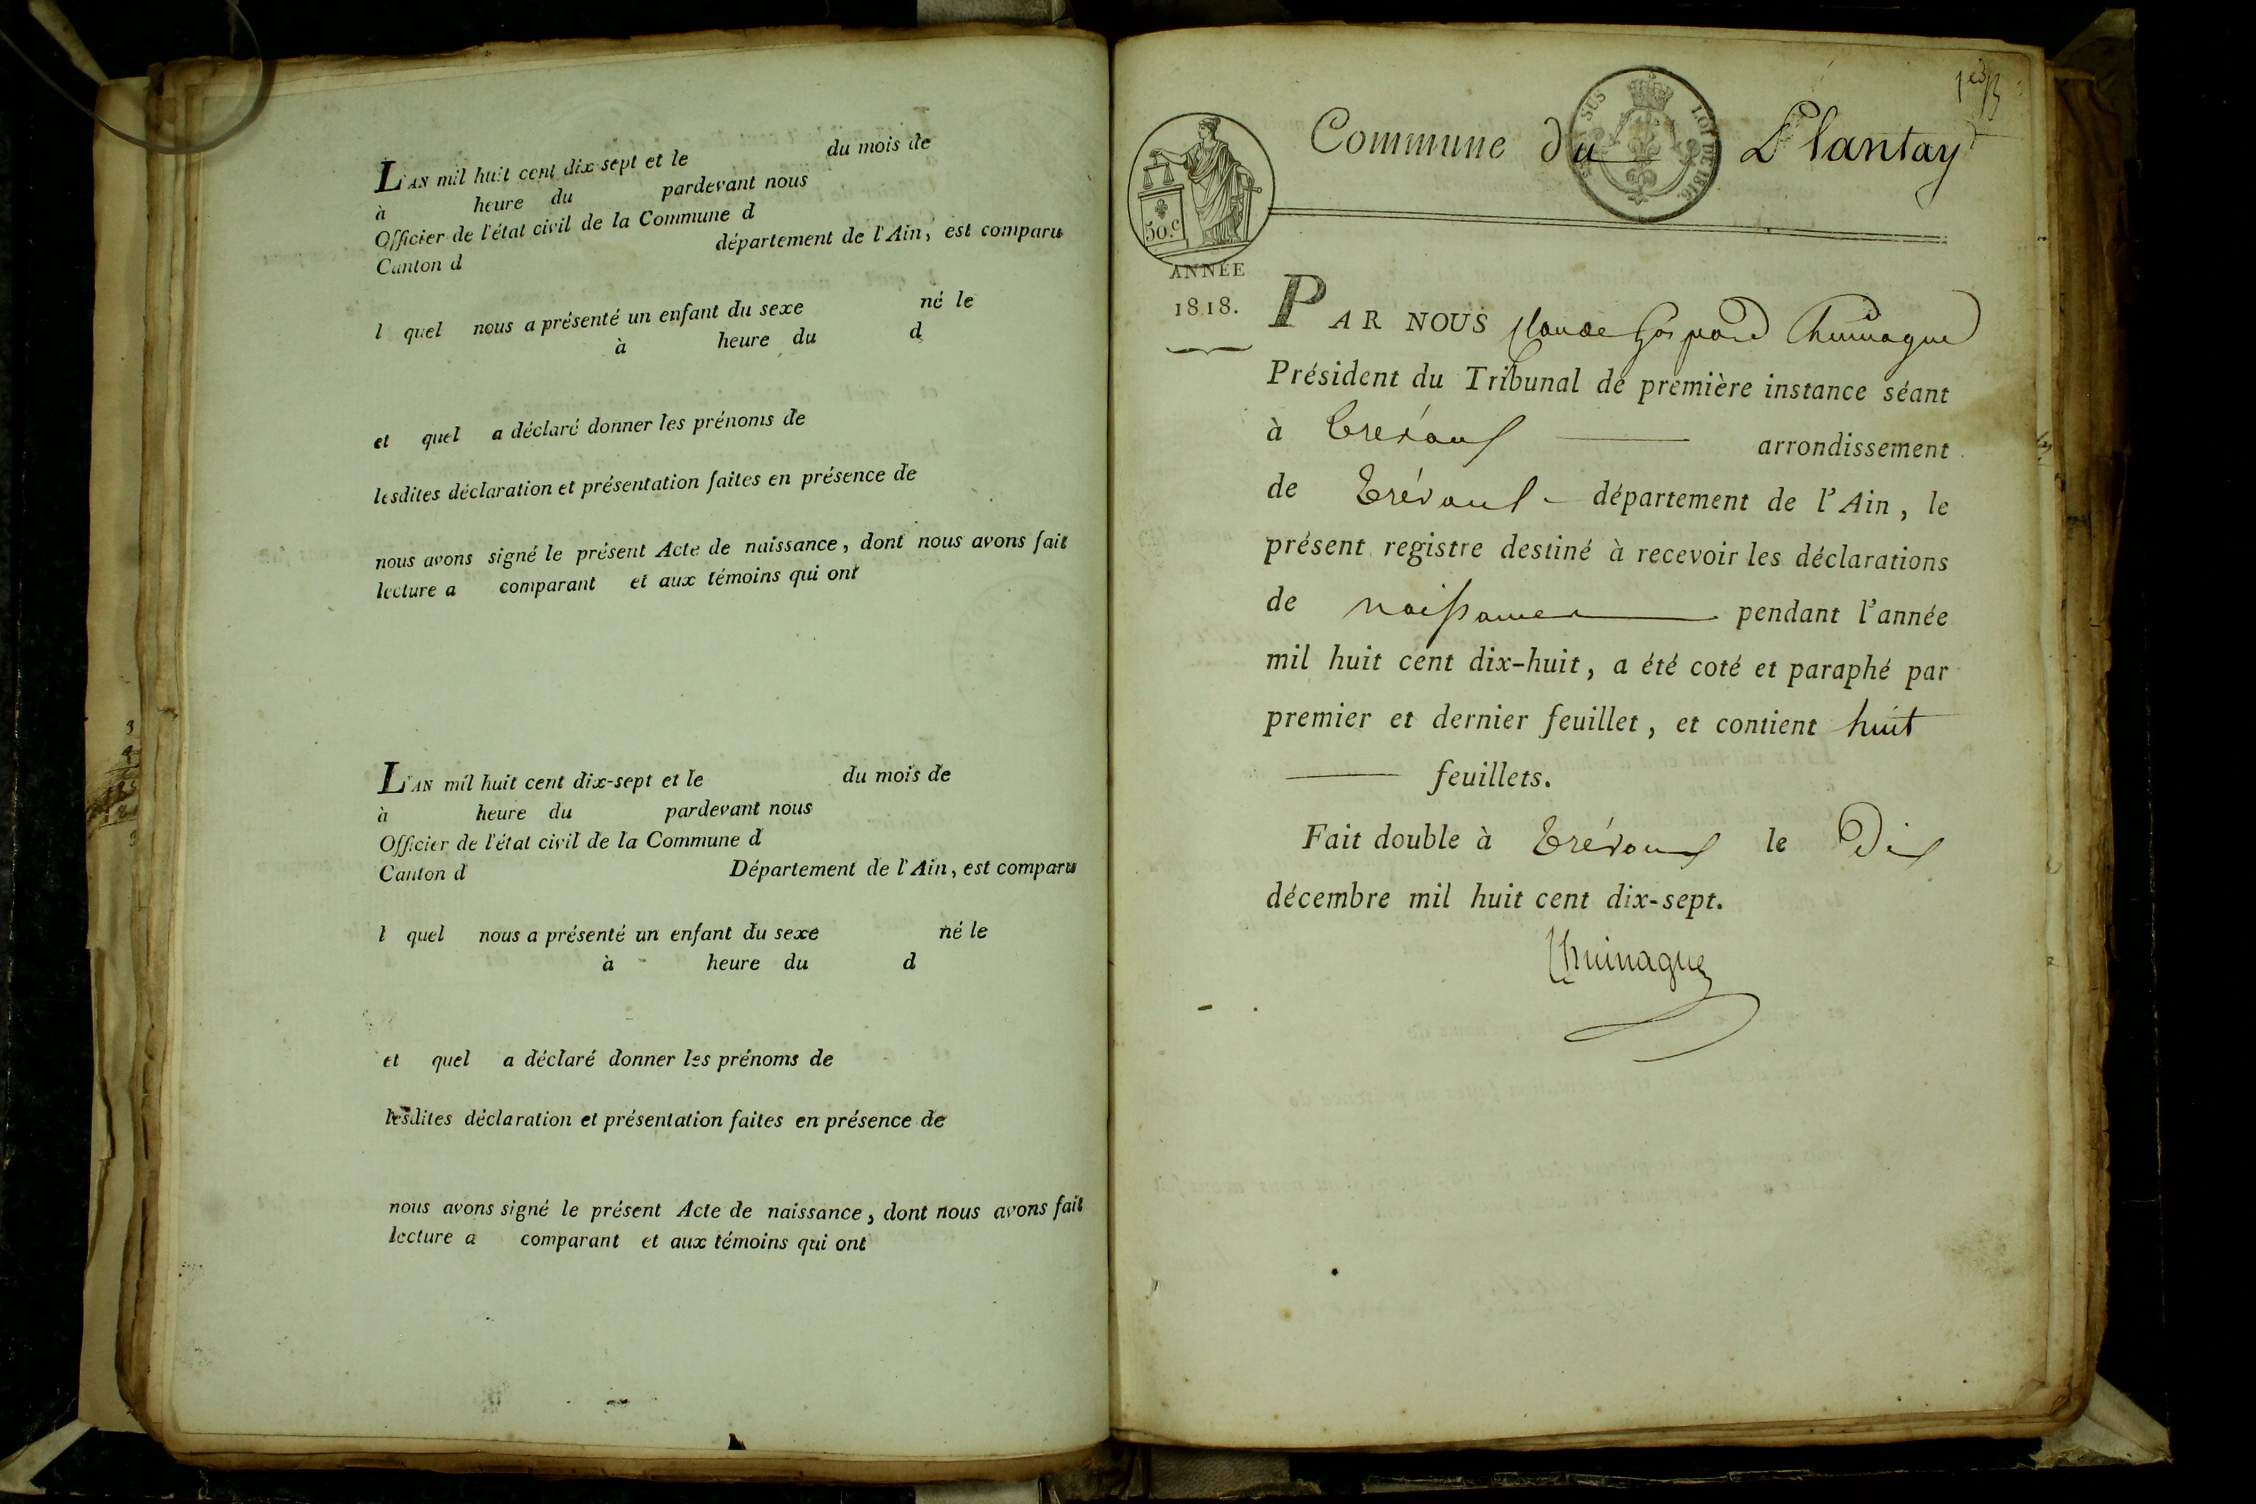 L'AN mil huit cent dix-sept et le du mois de
à heure du pardevant nous
Officier de l'état civil de la Commune d
Canton d département de l'Ain, est comparu
l quel nous a présenté un enfant du sexe né le
à heure du d
et quel a déclaré donner les prénoms de
lesdites déclaration et présentation faites en présence de
nous avons signé le présent Acte de naissance, dont nous avons fait
lecture a comparant et aux témoins qui ont
L'AN mil huit cent dix-sept et le du mois de
à heure du pardevant nous
Officier de l'état civil de la Commune d
Canton d Département de l'Ain, est comparu
l quel nous a présenté un enfant du sexe né le
à heure du d
et quel a déclaré donner les prénoms de
lesdites déclaration et présentation faites en présence de
nous avons signé le présent Acte de naissance, dont nous avons fait
lecture a comparant et aux témoins qui ont
Commune du Plantay
SUS LOI DE 1816.
50.c
ANNÉE
1818.
PAR NOUS Claude Gaspard
Président du Tribunal de première instance séant
à Trévoux arrondissement
de Trévoux département de l'Ain, le
présent registre destiné à recevoir les déclarations
de naissances pendant l'année
mil huit cent dix-huit, a été coté et paraphé par
premier et dernier feuillet, et contient huit
feuillets.
Fait double à Trévoux le Dix
décembre mil huit cent dix-sept.